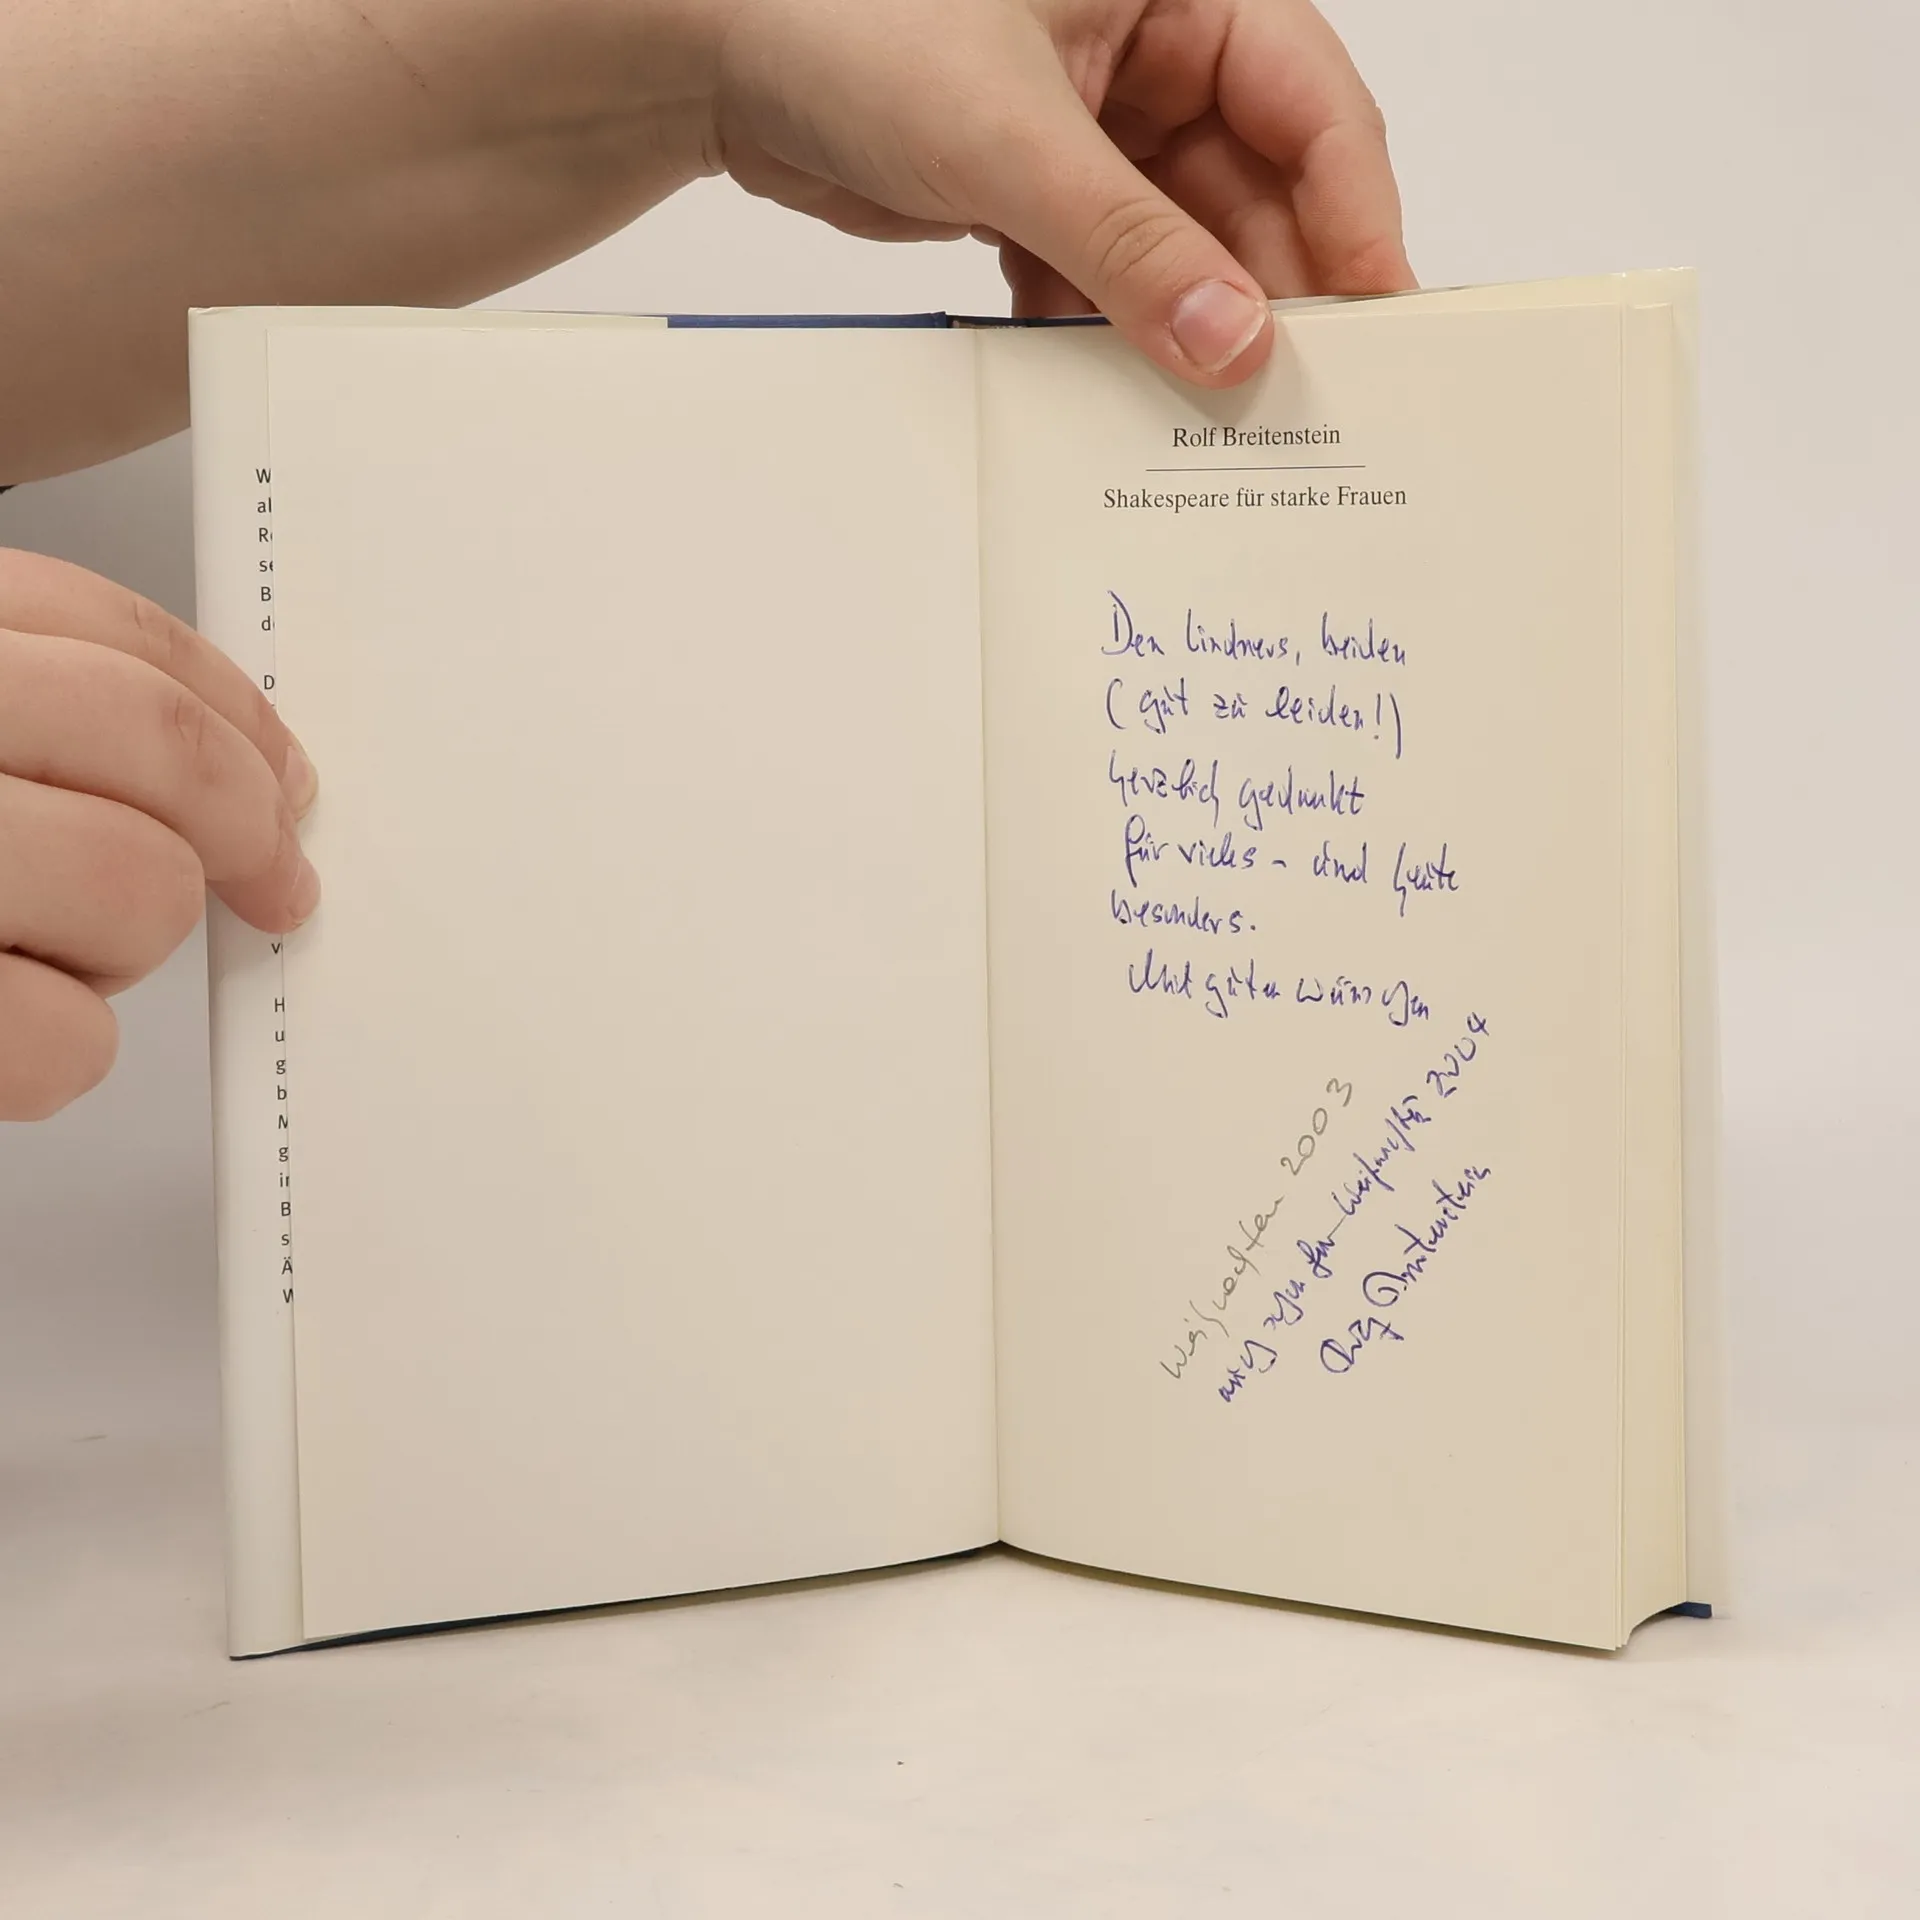 W
al
Re
se
B
de
D
v
H
u
g
b
M
g
in
B
s
Ä
W
Rolf Breitenstein
Shakespeare für starke Frauen
Den Lindners, beiden
(gut zu leiden!)
herzlich gedankt
für vieles - und heute
besonders.
Mit guten Wünschen
Weihnachten 2003
auch schon für Weihnachten 2004
Rolf Breitenstein